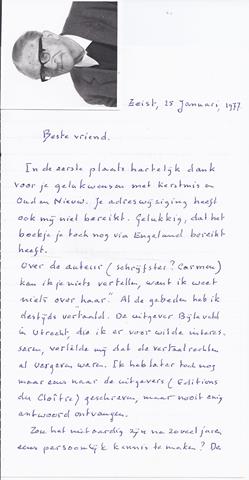 Zeist, 25 Januari, 1977
Beste vriend.
In de eerste plaats hartelijk dank
voor je gelukwensen met Kerstmis en
Oud en Nieuw. Je adreswijziging heeft
ook mij niet bereikt. Gelukkig, dat het
boekje je toch nog via Engeland bereikt
heeft.
Over de auteur (schrijfster? Carmen)
kan ik je niets vertellen, want ik weet
niets over "haar". Al de gebeden heb ik
destijds vertaald. De uitgever Bijleveld
in Utrecht, die ik er voor wilde interes-
seren, vertelde mij dat de vertaalrechten
al vergeven waren. Ik heb later toch nog
maar eens naar de uitgevers (Editions
du Cloître) geschreven, maar nooit enig
antwoord ontvangen.
Zou het niet aardig zijn na zoveel jaren
eens persoonlijk kennis te maken? De